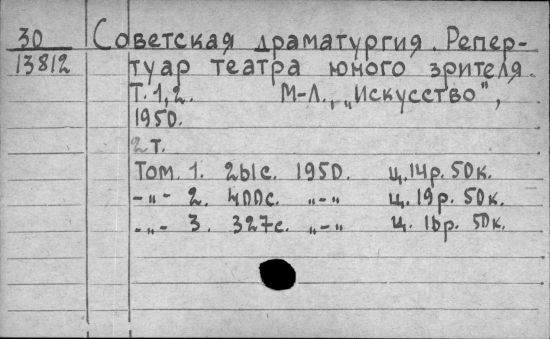 30 Советская драматургия. Репер-
13812 туар театра юного зрителя.
Т. 1, 2. М-Л., „Искусство",
1950.
2 т.
Том. 1. 261с. 1950. ц. 14р. 50к.
-„- 2. 400с. „-„ ц. 19р. 50к.
-„- 3. 327с. „-„ ц. 16р. 50к.